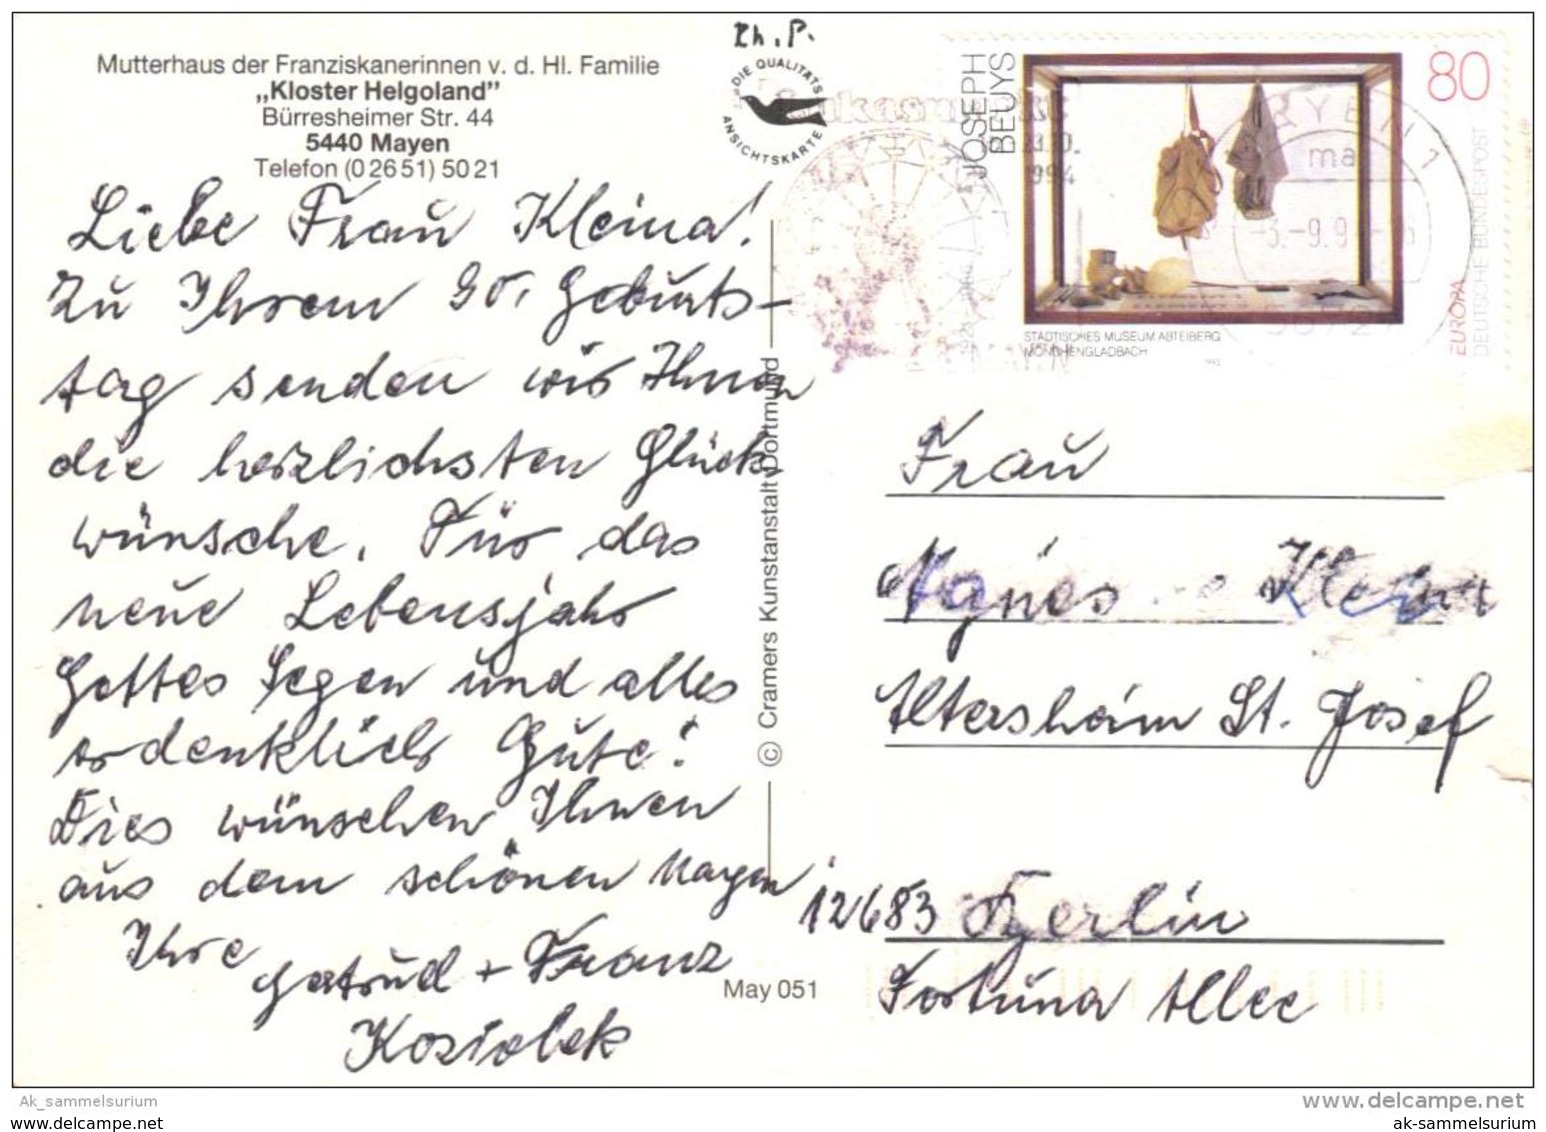 Mutterhaus der Franziskanerinnen v. d. Hl. Familie
„Kloster Helgoland"
Bürresheimer Str. 44
5440 Mayen
Telefon (0 26 51) 50 21
Rh. P.
DIE QUALITÄTS
ANSICHTSKARTE
JOSEPH
BEUYS
80
STÄDTISCHES MUSEUM ABTEIBERG
MÖNCHENGLADBACH
EUROPA
DEUTSCHE BUNDESPOST
1994
Liebe Frau Kleina!
Zu Ihrem 90. Geburts-
tag senden wir Ihnen
die herzlichsten Glück
wünsche. Für das
neue Lebensjahr
Gottes Segen und alles
erdenklich Gute!
Dies wünschen Ihnen
aus dem schönen Mayen
Ihre
Gertrud + Franz
Koziolek
© Cramers Kunstanstalt Dortmund
May 051
Frau
Agnes
Altersheim St. Josef
12683 Berlin
Fortuna Allee
Ak_sammelsurium
www.delcampe.net
ak-sammelsurium
ak-sammelsurium